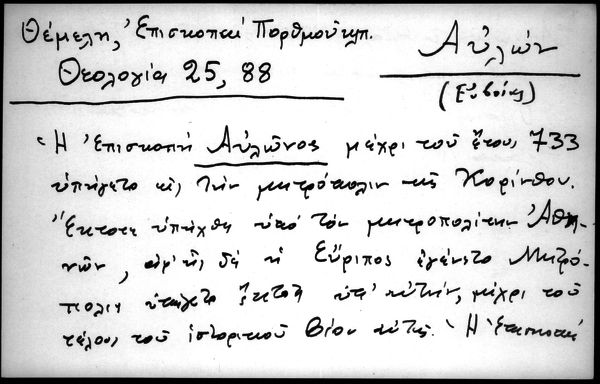 Θέμελη, Ἐπισκοπαί Πορθμοῦ κτλ.
Θεολογία 25, 88
Αὐλών
(Εὐβοίας)
"Ἡ Ἐπισκοπή Αὐλῶνος μέχρι τοῦ ἔτους 733
ὑπήγετο εἰς τήν μητρόπολιν τῆς Κορίνθου.
Ἔκτοτε ὑπήχθη ὑπό τόν μητροπολίτην Ἀθη-
νῶν, ἀφ' ἧς δέ ἡ Εὔριπος ἐγένετο Μητρό-
πολις ὑπήγετο ἔκτοτε ὑπ' αὐτήν, μέχρι τοῦ
τέλους τοῦ ἱστορικοῦ βίου αὐτῆς. Ἡ Ἐπισκοπή